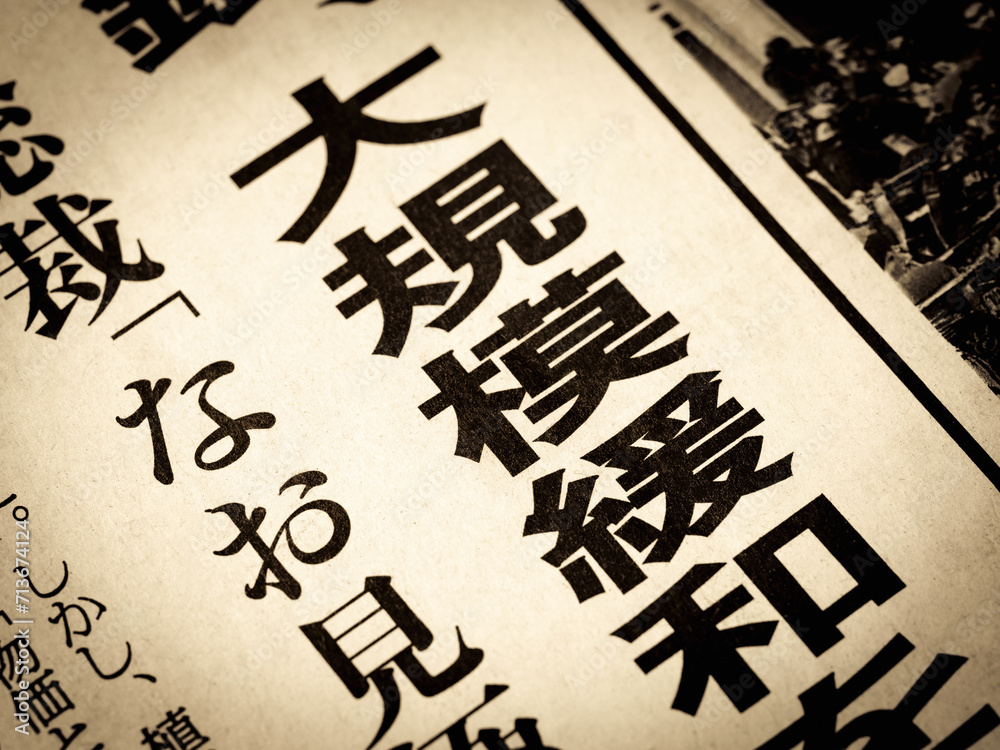 大規模緩和
総裁「なお見
しかし、
植
物価
Adobe Stock | #713674124
Adobe Stock